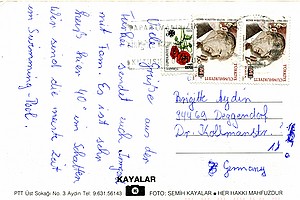 Viele Grüße aus der
Türkei sendet euch
mit Fam. Es ist sehr
heiß hier 40° im Schatten
Wir sind die meiste Zeit
im Swimming-Pool.
TÜRKİYE CUMHURİYETİ
TÜRKİYE CUMHURİYETİ
Brigitte Aydin
94469 Deggendorf
Dr. Kollmannstr.
Germany
KAYALAR
PTT Üst Sokağı No. 3 Aydın Tel: 9.631.56143
FOTO: SEMİH KAYALAR ● HER HAKKI MAHFUZDUR